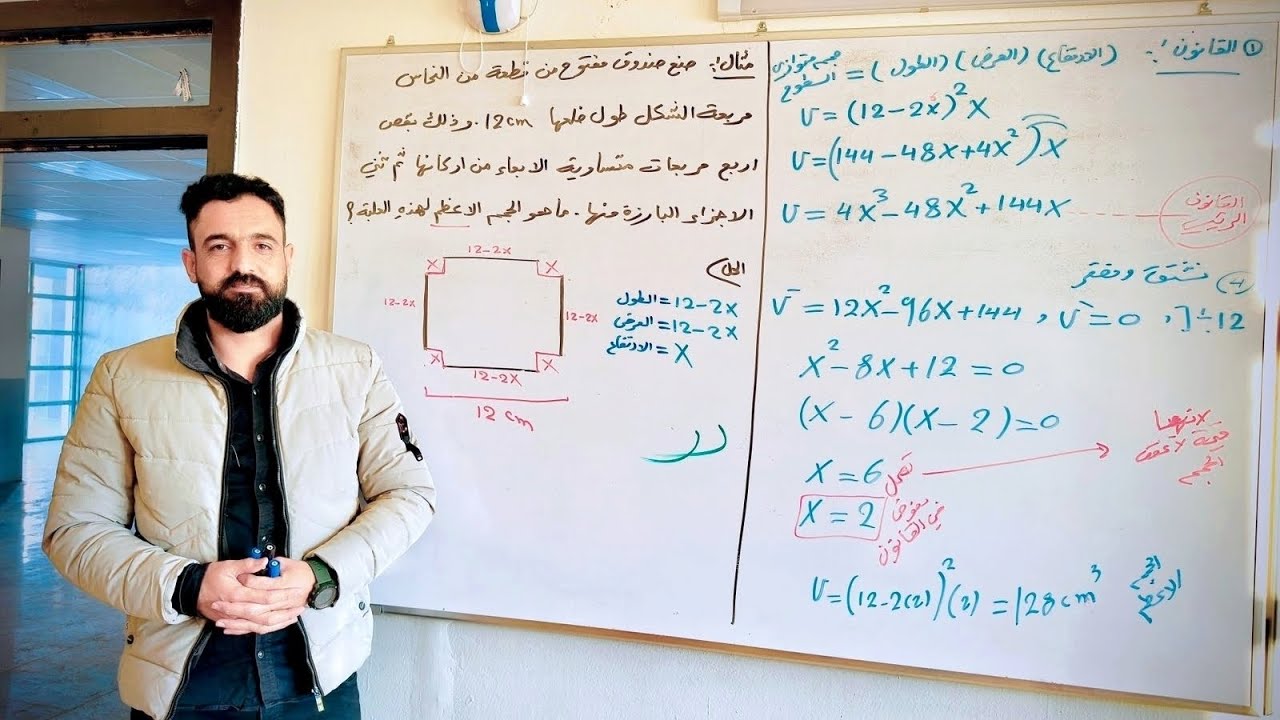 مثال/: صنع صندوق مفتوح من قطعة من النحاس
مربعة الشكل طول ضلعها 12cm. وذلك بقص
اربع مربعات متساوية الابعاد من اركانها ثم ثني
الاجزاء البارزة منها. ما هو الحجم الاعظم لهذه العلبة؟
الحل
12-2x
X X
12-2x 12-2x
X X
12-2X
12 cm
الطول = 12-2X
العرض = 12-2X
الارتفاع = X
① القانون/: (الارتفاع)(العرض)(الطول) = حجم متوازي السطوح
V = (12-2x)²X
V = (144-48X+4X²)X
V = 4X³-48X²+144X
القانون الرئيسي
④ نشتق ونصفر
V̄ = 12X²-96X+144 , V̄ = 0 , ] ÷ 12
X²-8X+12 = 0
(X-6)(X-2) = 0
X = 6 تهمل
لانها
قيمة لا تحقق
الحجم
X = 2 نعوض
في القانون
V = (12-2(2))²(2) = 128cm³ الحجم الاعظم